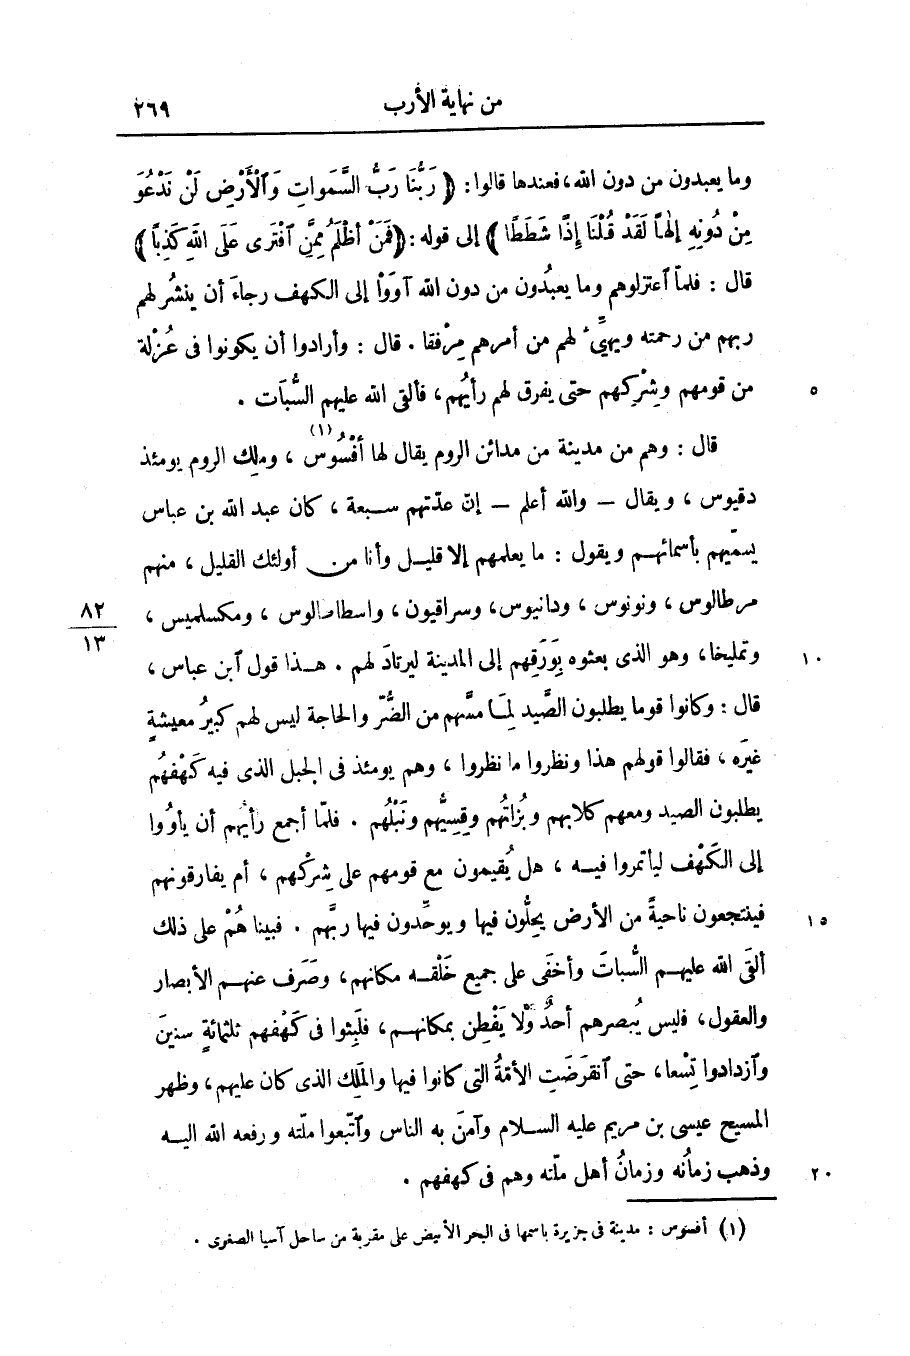 من نهاية الأرب ٢٦٩
وما يعبدون من دون الله، فعندها قالوا: ﴿ رَبُّنَا رَبُّ السَّمَواتِ وَٱلْأَرْضِ لَنْ نَدْعُوَ
مِنْ دُونِهِ إِلٰهًا لَقَدْ قُلْنَا إِذًا شَطَطًا ﴾ إلى قوله : ﴿فَمَنْ أَظْلَمُ مِمَّنِ ٱفْتَرى عَلَى اللهِ كَذِبًا﴾
قال : فلمّا ٱعتزلوهم وما يعبُدون من دون الله آوَوْا إلى الكهف رجاءَ أن ينشُر لهم
ربهم من رحمته ويهيِّئ لهم من أمرهم مِرْفقا . قال : وأرادوا أن يكونوا فى عُزْلة
من قومهم وشِرْكِهم حتى يفرق لهم رأيُهم، فألقى الله عليهم السُّبَات . ٥
قال : وهم من مدينة من مدائن الروم يقال لها أفْسُوس (١) ، وملِك الروم يومئذ
دقيوس ، ويقال — والله أعلم — إنّ عدّتهم سبعة ، كان عبد الله بن عباس
يسمّيهم بأسمائهم ويقول : ما يعلمهم إلا قليل وأنا من أولئك القليل ، منهم
مرطالوس ، ونونوس ، ودانيوس، وسراقيون، واسطاطالوس ، ومكسلميس ، ٨٢/١٣
وتمليخا، وهو الذى بعثوه بِوَرَقِهم إلى المدينة ليرتادَ لهم . هذا قول ٱبن عباس ، ١٠
قال : وكانوا قوما يطلبون الصَّيد لِمَا مسَّهم من الضُّرّ والحاجة ليس لهم كبيرُ معيشةٍ
غيرَه ، فقالوا قولهم هذا ونظروا ما نظروا ، وهم يومئذ فى الجبل الذى فيه كَهْفهُم
يطلبون الصيد ومعهم كلابهم وبُزاتُهم وقِسِيُّهم ونَبْلُهم . فلمّا أجمع رأيُهم أن يأوُوا
إلى الكَهْف ليأتمروا فيه ، هل يُقيمون مع قومهم على شِرْكهم ، أم يفارقونهم
فينتجعون ناحيةً من الأرض يحِلُّون فيها ويوحِّدون فيها ربَّهم . فبينا هُمْ على ذلك ١٥
ألقَى الله عليهم السُّباتَ وأخفَى على جميع خَلْقه مكانهم، وصَرَف عنهم الأبصار
والعقول، فليس يُبصرهم أحدٌ ولا يَفْطِن بمكانهم، فلَبِثوا فى كَهْفهم ثلثمائةٍ سنينَ
وٱزدادوا تِسْعا، حتى ٱنقرَضَتِ الأمّةُ التى كانوا فيها والملَِك الذى كان عليهم، وظهر
المسيح عيسى بن مريم عليه السلام وآمنَ به الناس وٱتّبعوا ملّته ورفعه الله اليه
وذهب زمانُه وزمانُ أهل ملّته وهم فى كهفهم . ٢٠
(١) أفسوس : مدينة فى جزيرة باسمها فى البحر الأبيض على مقربة من ساحل آسيا الصغرى .